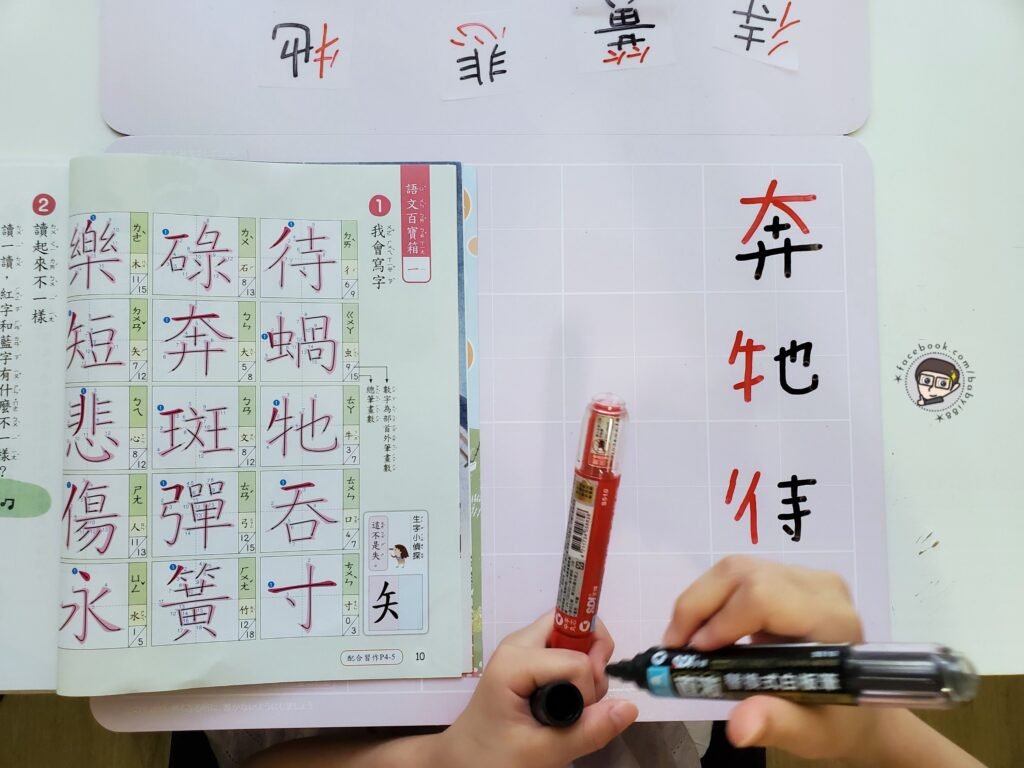 牠
悲
簧
待
語文百寶箱
一
1 我會寫字
待 ㄉㄞ 彳 6/9
蝸 ㄍㄨㄚ 虫 9/15
牠 ㄊㄚ 牛 3/7
吞 ㄊㄨㄣ 口 4/7
寸 ㄘㄨㄣˋ 寸 0/3
碌 ㄌㄨˋ 石 8/13
奔 ㄅㄣ 大 5/8
斑 ㄅㄢ 文 8/12
彈 ㄊㄢˊ 弓 12/15
簧 ㄏㄨㄤˊ 竹 12/18
樂 ㄌㄜˋ 木 11/15
短 ㄉㄨㄢˇ 矢 7/12
悲 ㄅㄟ 心 8/12
傷 ㄕㄤ 人 11/13
永 ㄩㄥˇ 水 1/5
數字為部首外筆畫數
總筆畫數
生字小偵探
這不是失。
矢
配合習作P4-5
10
2 讀起來不一樣
讀一讀，紅字和藍字有什麼不一樣？
奔
牠
待
facebook.com/baby188
替換式白板筆